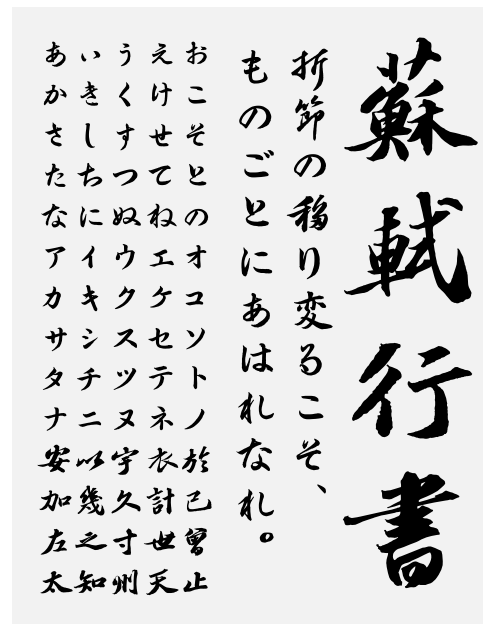 蘇軾行書
折節の移り変るこそ、
ものごとにあはれなれ。
おこそとのオコソトノ於己曾止
えけせてねエケセテネ衣計世天
うくすつぬウクスツヌ宇久寸州
いきしちにイキシチニ以幾之知
あかさたなアカサタナ安加左太